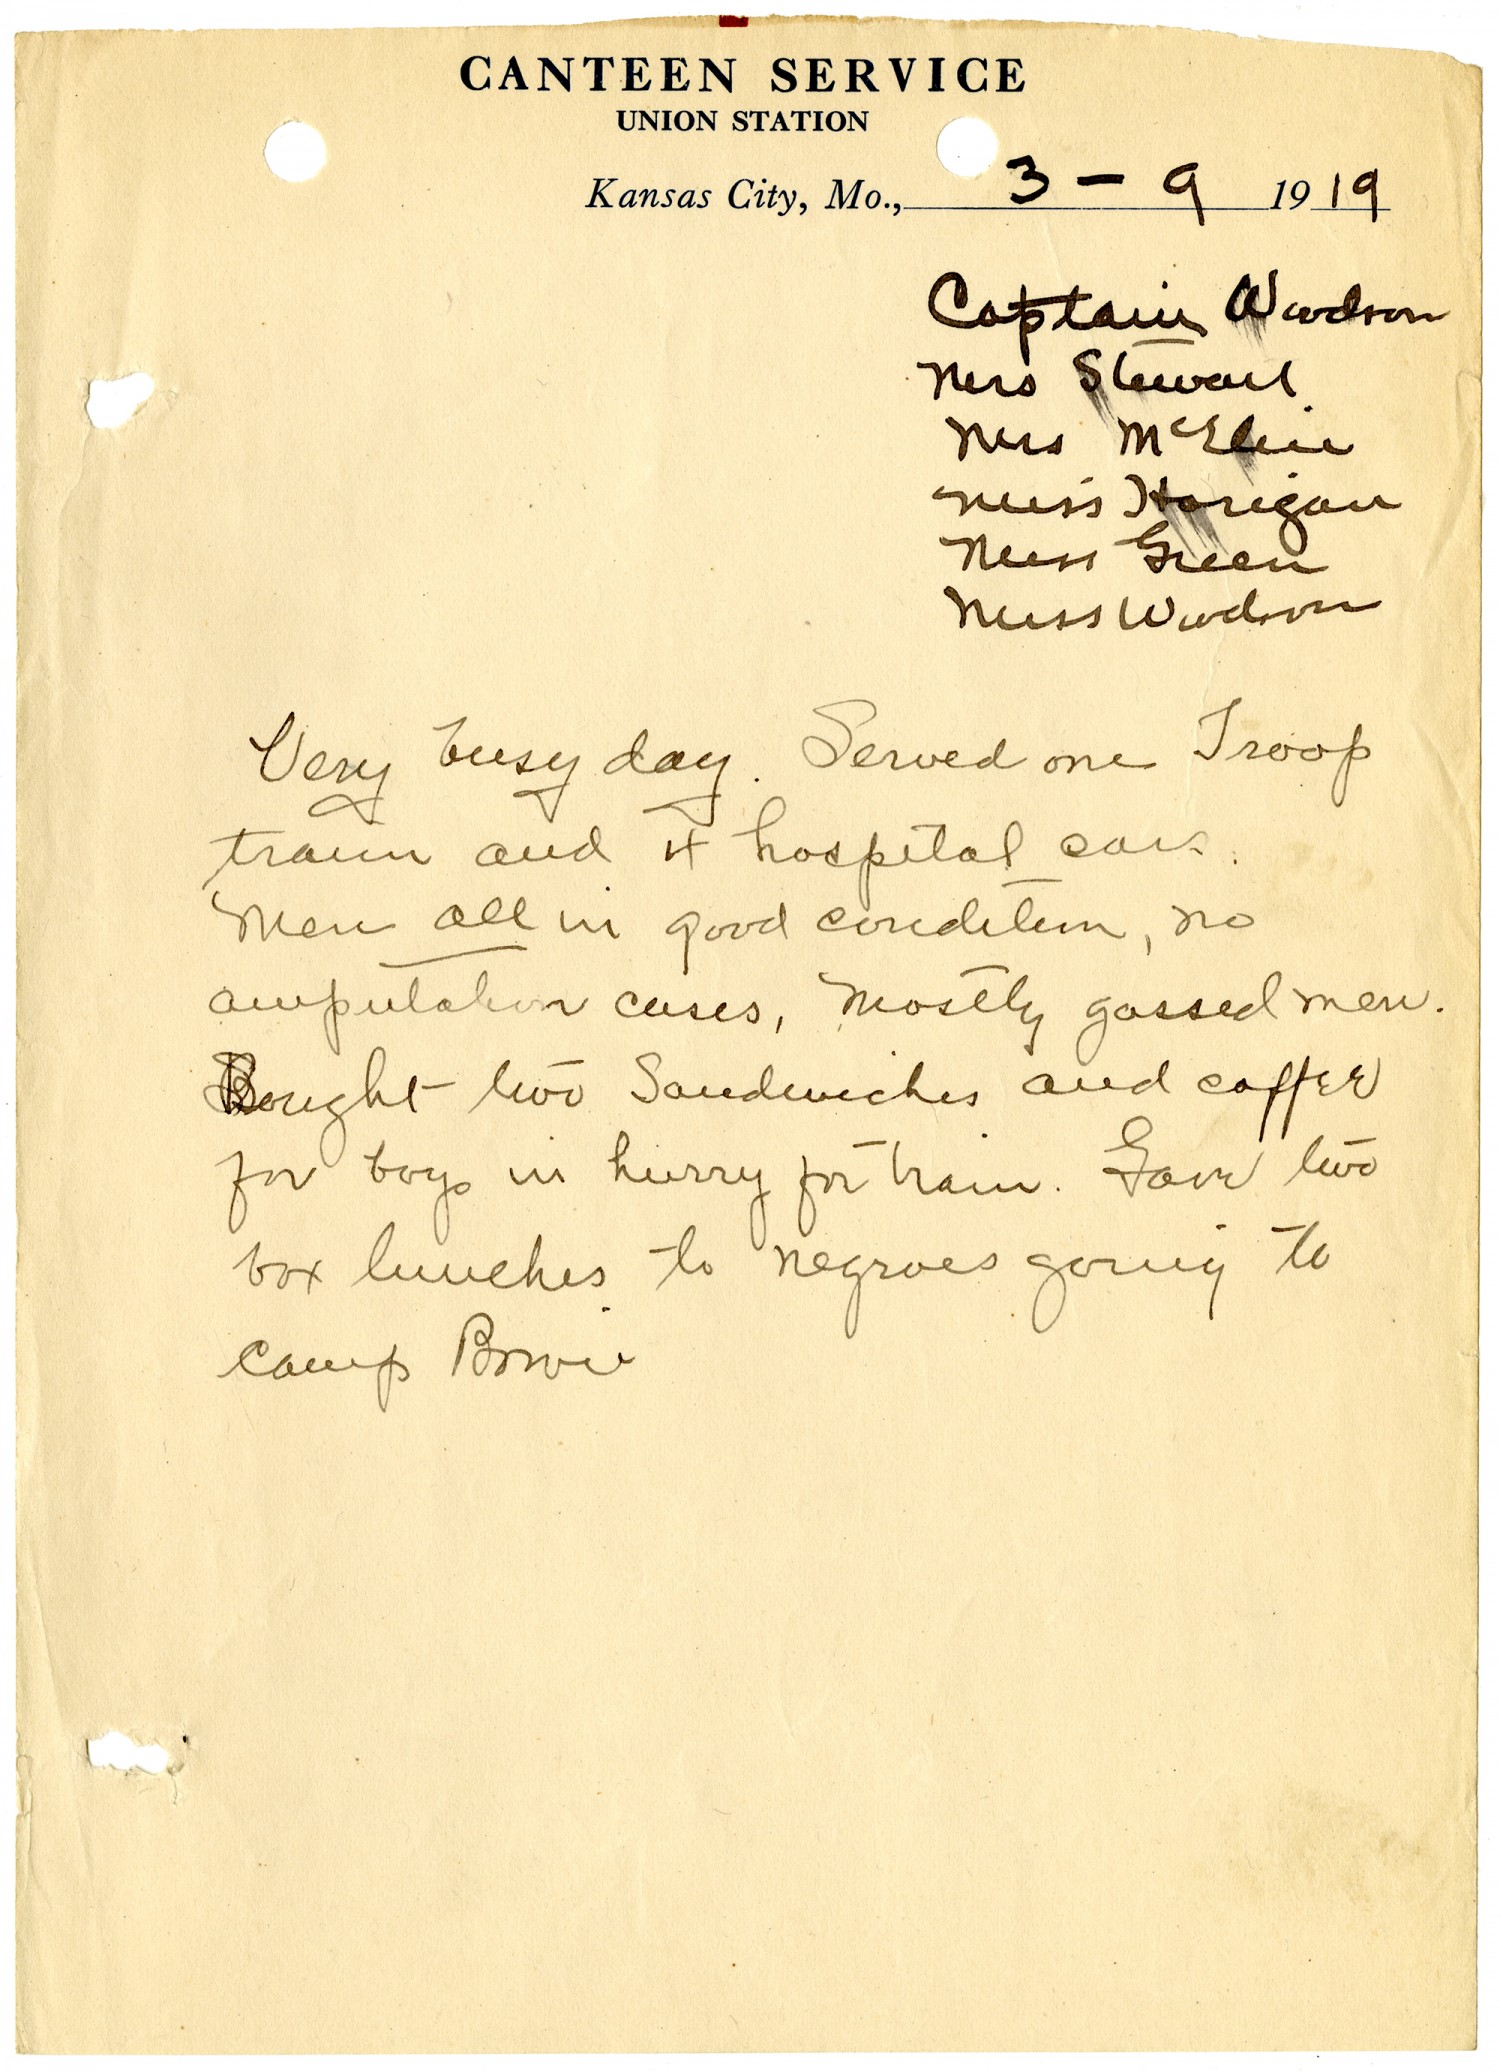 CANTEEN SERVICE
UNION STATION
Kansas City, Mo., 3 - 9 1919
Captain Woodson
Mrs Stewart
Mrs
Miss Horigan
Miss Green
Miss Woodson
Very busy day. Served one Troop
train and 4 hospital cars.
Men all in good condition, no
amputation cases, Mostly gassed men.
Bought two Sandwiches and coffee
for boys in hurry for train. Gave two
box lunches to negroes going to
Camp Bowie